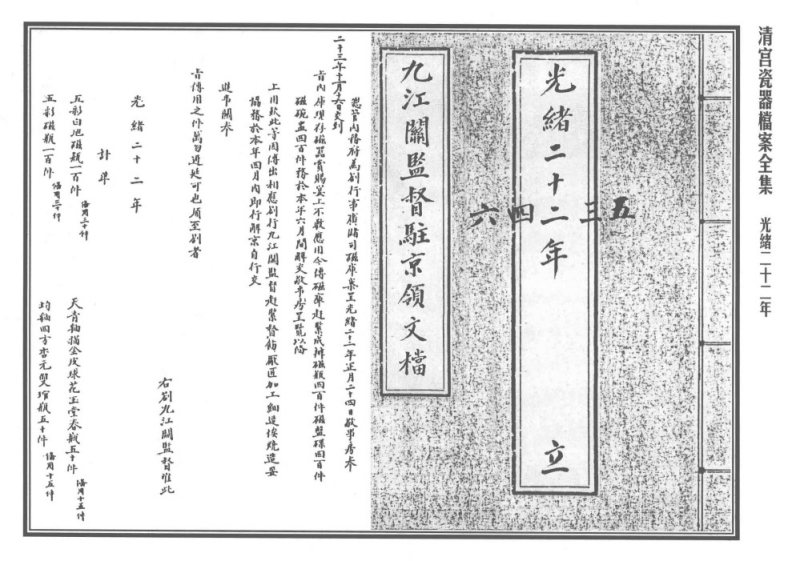 清宫瓷器檔案全集 光緒二十二年
光緒二十二年 立
六四三五
九江關監督駐京領文檔
二十三年十一月十六日交到
總管內務府為劄行事廣儲司磁庫案呈光緒二十二年正月二十四日敬事房奉
旨內庫現存磁器賞賜宴上不敷應用今傳磁庫趕緊成辦磁瓶四百件磁盤碟四百件
磁碗盖四百件務於本年六月間解交敬事房呈覽以備
上用欽此等因傳出相應劄行九江關監督趕緊督飭廠匠加工細造挨燒造妥
協務於本年四月內即行解京自行交
進事關奉
旨傳用之件萬勿遲延可也須至劄者
右劄九江關監督准此
光緒二十二年
計單
五彩白地磁瓶一百件 備用三十件
天青釉描金皮球花玉堂春瓶五十件 備用十五件
五彩磁瓶一百件 備用三十件
均釉四方杏元雙琯瓶五十件 備用十五件